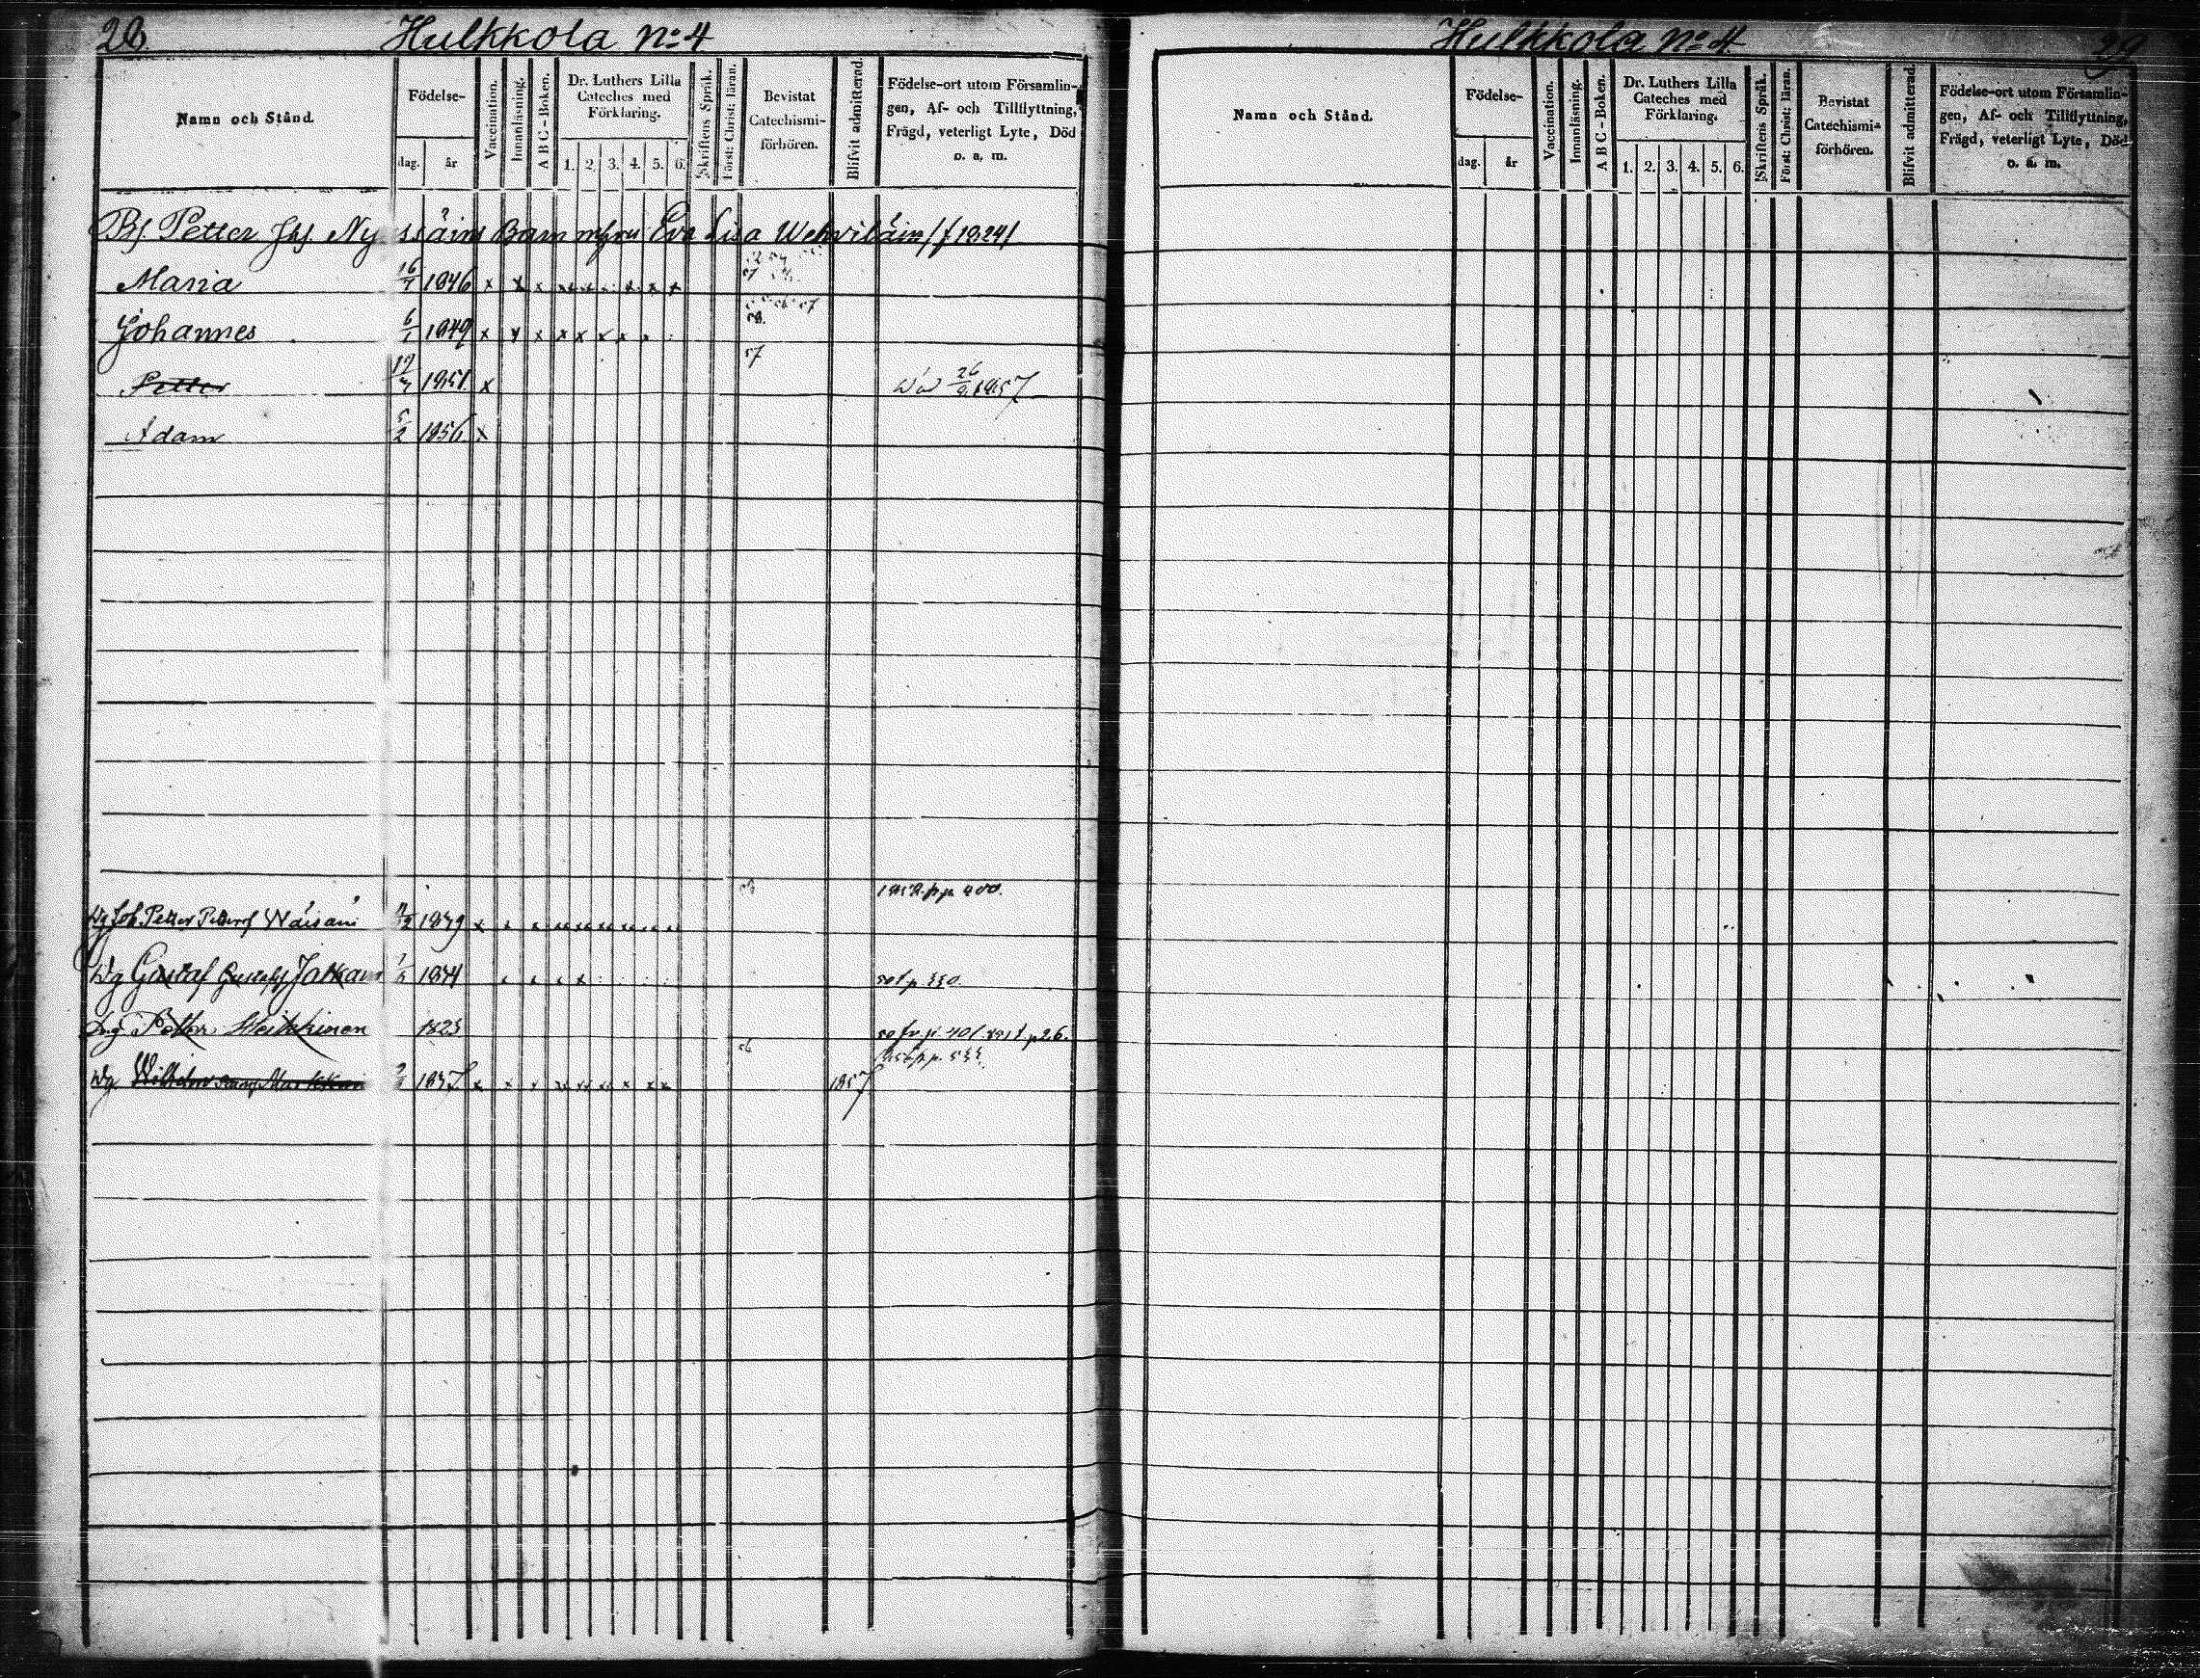 28. Hulkkola No 4
Namn och Stånd.
Födelse-
dag. år
Vaccination.
Innanläsning.
A B C - Boken.
Dr. Luthers Lilla Cateches med Förklaring.
1. 2. 3. 4. 5. 6.
Skriftens Språk.
Först: Christ: läran.
Bevistat Catechismi-förhören.
Blifvit admitterad.
Födelse-ort utom Församlin-
gen, Af- och Tillflyttning,
Frägd, veterligt Lyte, Död
o. a. m.
Petter Ny ssäin Barn m hru Eva Lisa Wehviläin /f 1824/
Maria 16/7 1846 x x x
Johannes 6/1 1849 x x x x x x x
57
Petter 1851 x 26/9 1857
Adam 5/2 1856 x
1858 p 400.
Joh. Petter Petterss Wäisäin 1839 x
Dg Gustaf Gustafss Jalkan 1844
Petter Heikkinen 1823
56
Dg Wilhelm Markkan 1837 x x x 1857
Hulkkola No 4 29
Namn och Stånd.
Födelse-
dag. år
Vaccination.
Innanläsning.
A B C - Boken.
Dr. Luthers Lilla Cateches med Förklaring.
1. 2. 3. 4. 5. 6.
Skriftens Språk.
Först: Christ: läran.
Bevistat Catechismi-förhören.
Blifvit admitterad
Födelse-ort utom Församlin-
gen, Af- och Tillflyttning,
Frägd, veterligt Lyte, Död
o. a. m.